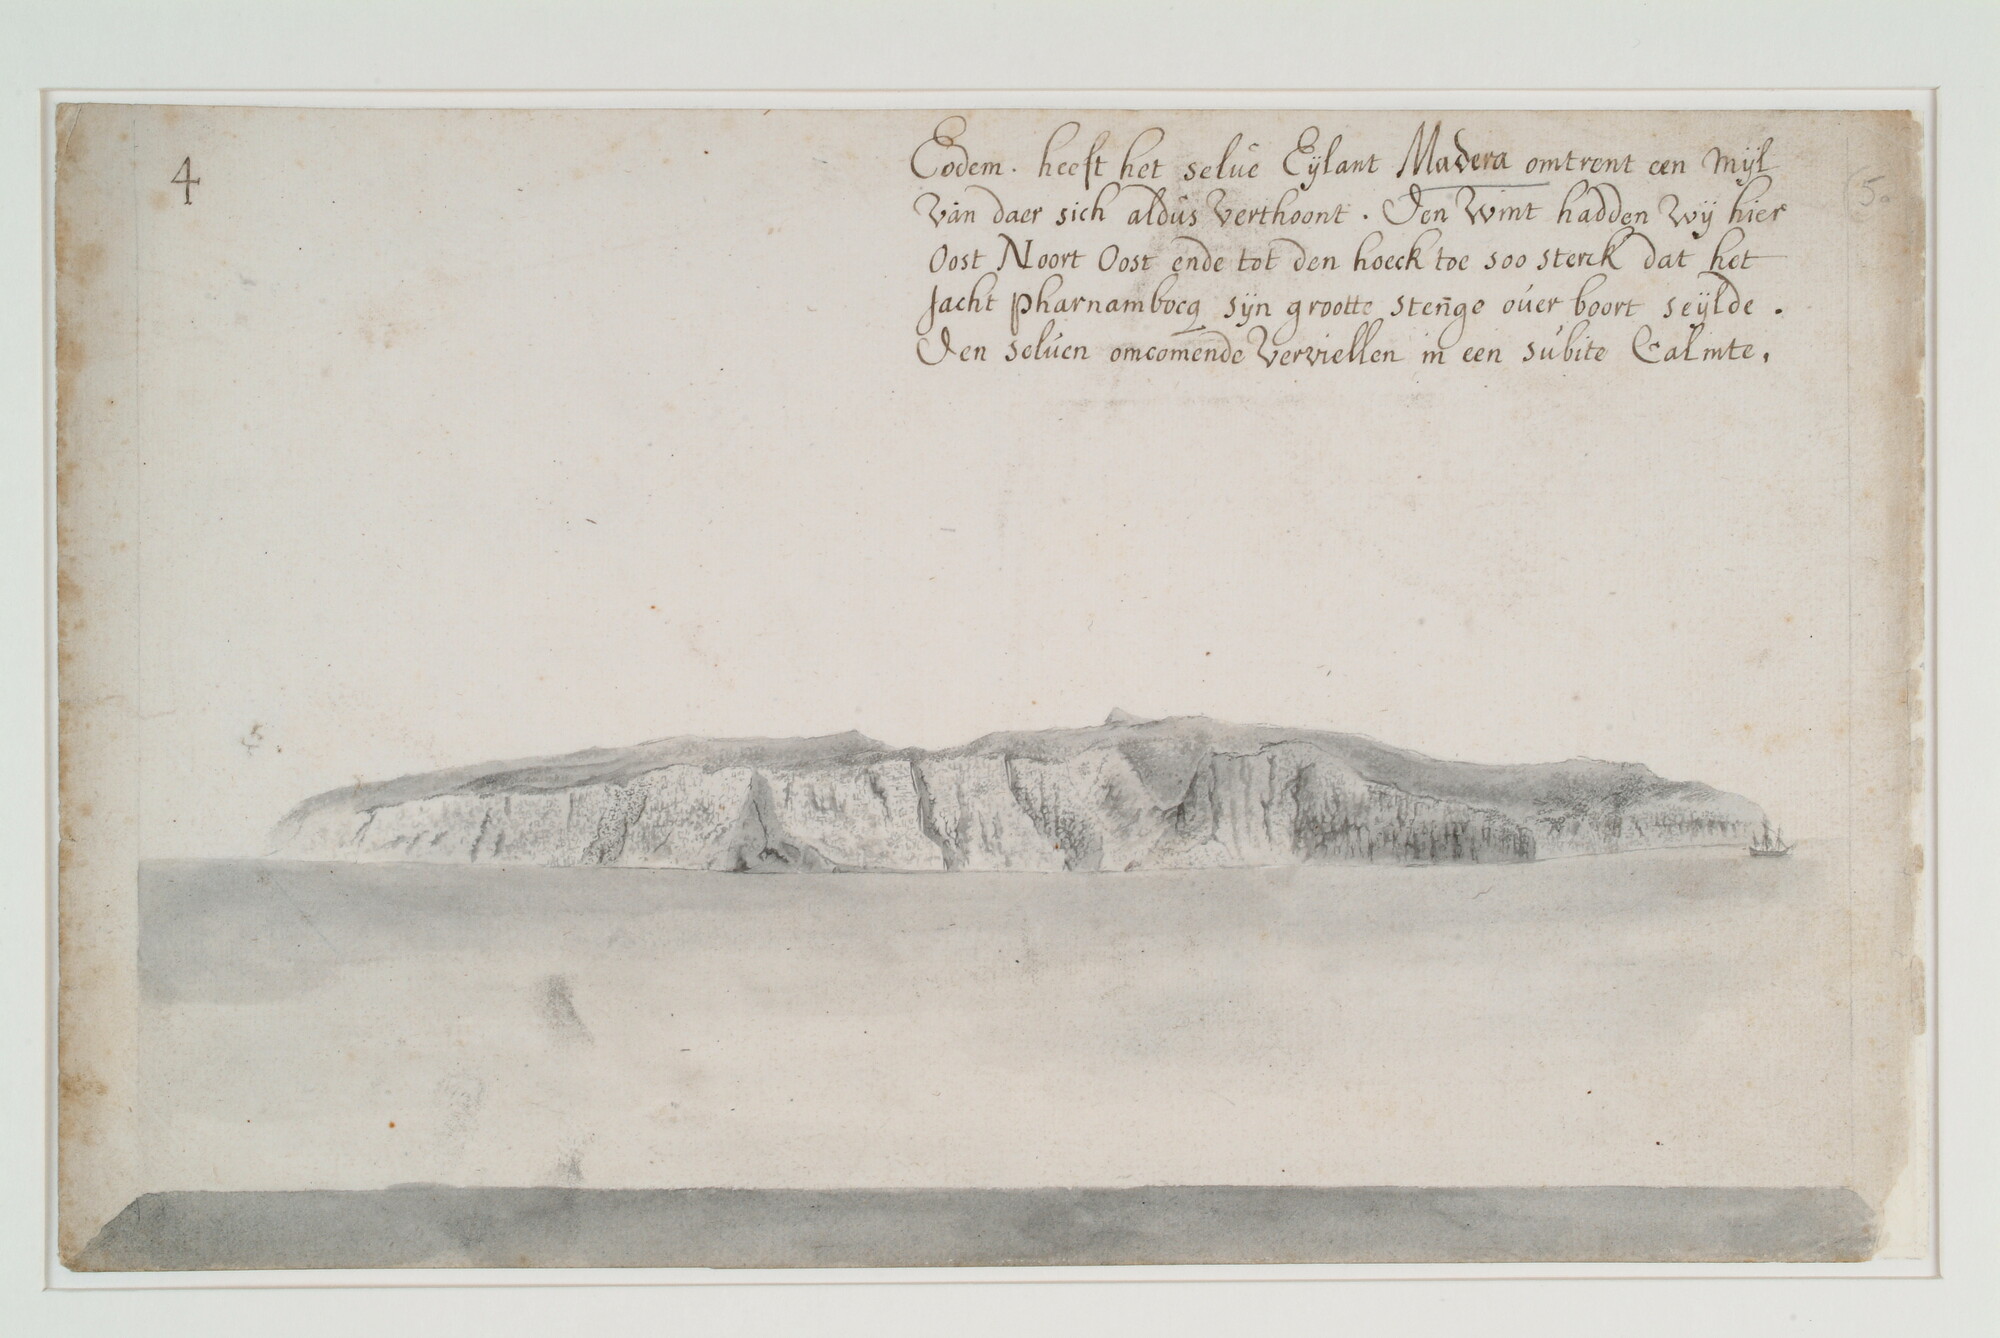 4
Eodem. heeft het selve Eylant Madera omtrent een mijl
van daer sich aldus verthoont. Den wint hadden wij hier
Oost Noort Oost ende tot den hoeck toe soo sterck dat het
Jacht Pharnambocq sijn grootte stenge over boort seijlde.
Den selven omcomende vervielen in een subite Calmte,
5.